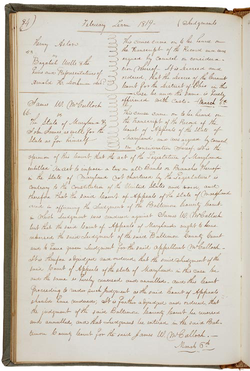 96) February Term 1819. (Judgments
This cause came on to be heard on
the transcript of the Record and was
argued by Counsel on
of the Circuit
Court for the District of Ohio in this
affirmed with costs. March
James W. McCulloch
vs
The State of Maryland &
John James as well for the
State as for himself
This cause came on to be heard on
the Transcript of the Record of the
Court of Appeals of the State of
Maryland and was argued by counsel
opinion of this Court that the act of the Legislature of Maryland
entitled "an act to impose a tax on all Banks or Branches thereof
in the State of Maryland not chartered by the Legislature" is
contrary to the Constitution of the United States and void, and
therefore that the said Court of Appeals of the State of Maryland
erred in affirming the Judgment of the Baltimore County Court
in which Judgment was rendered against James W. McCulloch
but that the said Court of Appeals of Maryland ought to have
reversed the said Judgment of the said Baltimore County Court
and to have given Judgment for the said appellant McCulloch.
It is therefore adjudged and ordered that the said Judgment of the
said Court of Appeals of the State of Maryland in this case be
and the same is hereby reversed and annulled, and this Court
proceeding to render such Judgment as the said Court of Appeals
should have rendered, It is further adjudged and ordered that
the judgment of the said Baltimore County Court be reversed
and annulled, and that Judgment be entered in the said Balti-
more County Court for the said James W. McCulloch.
March